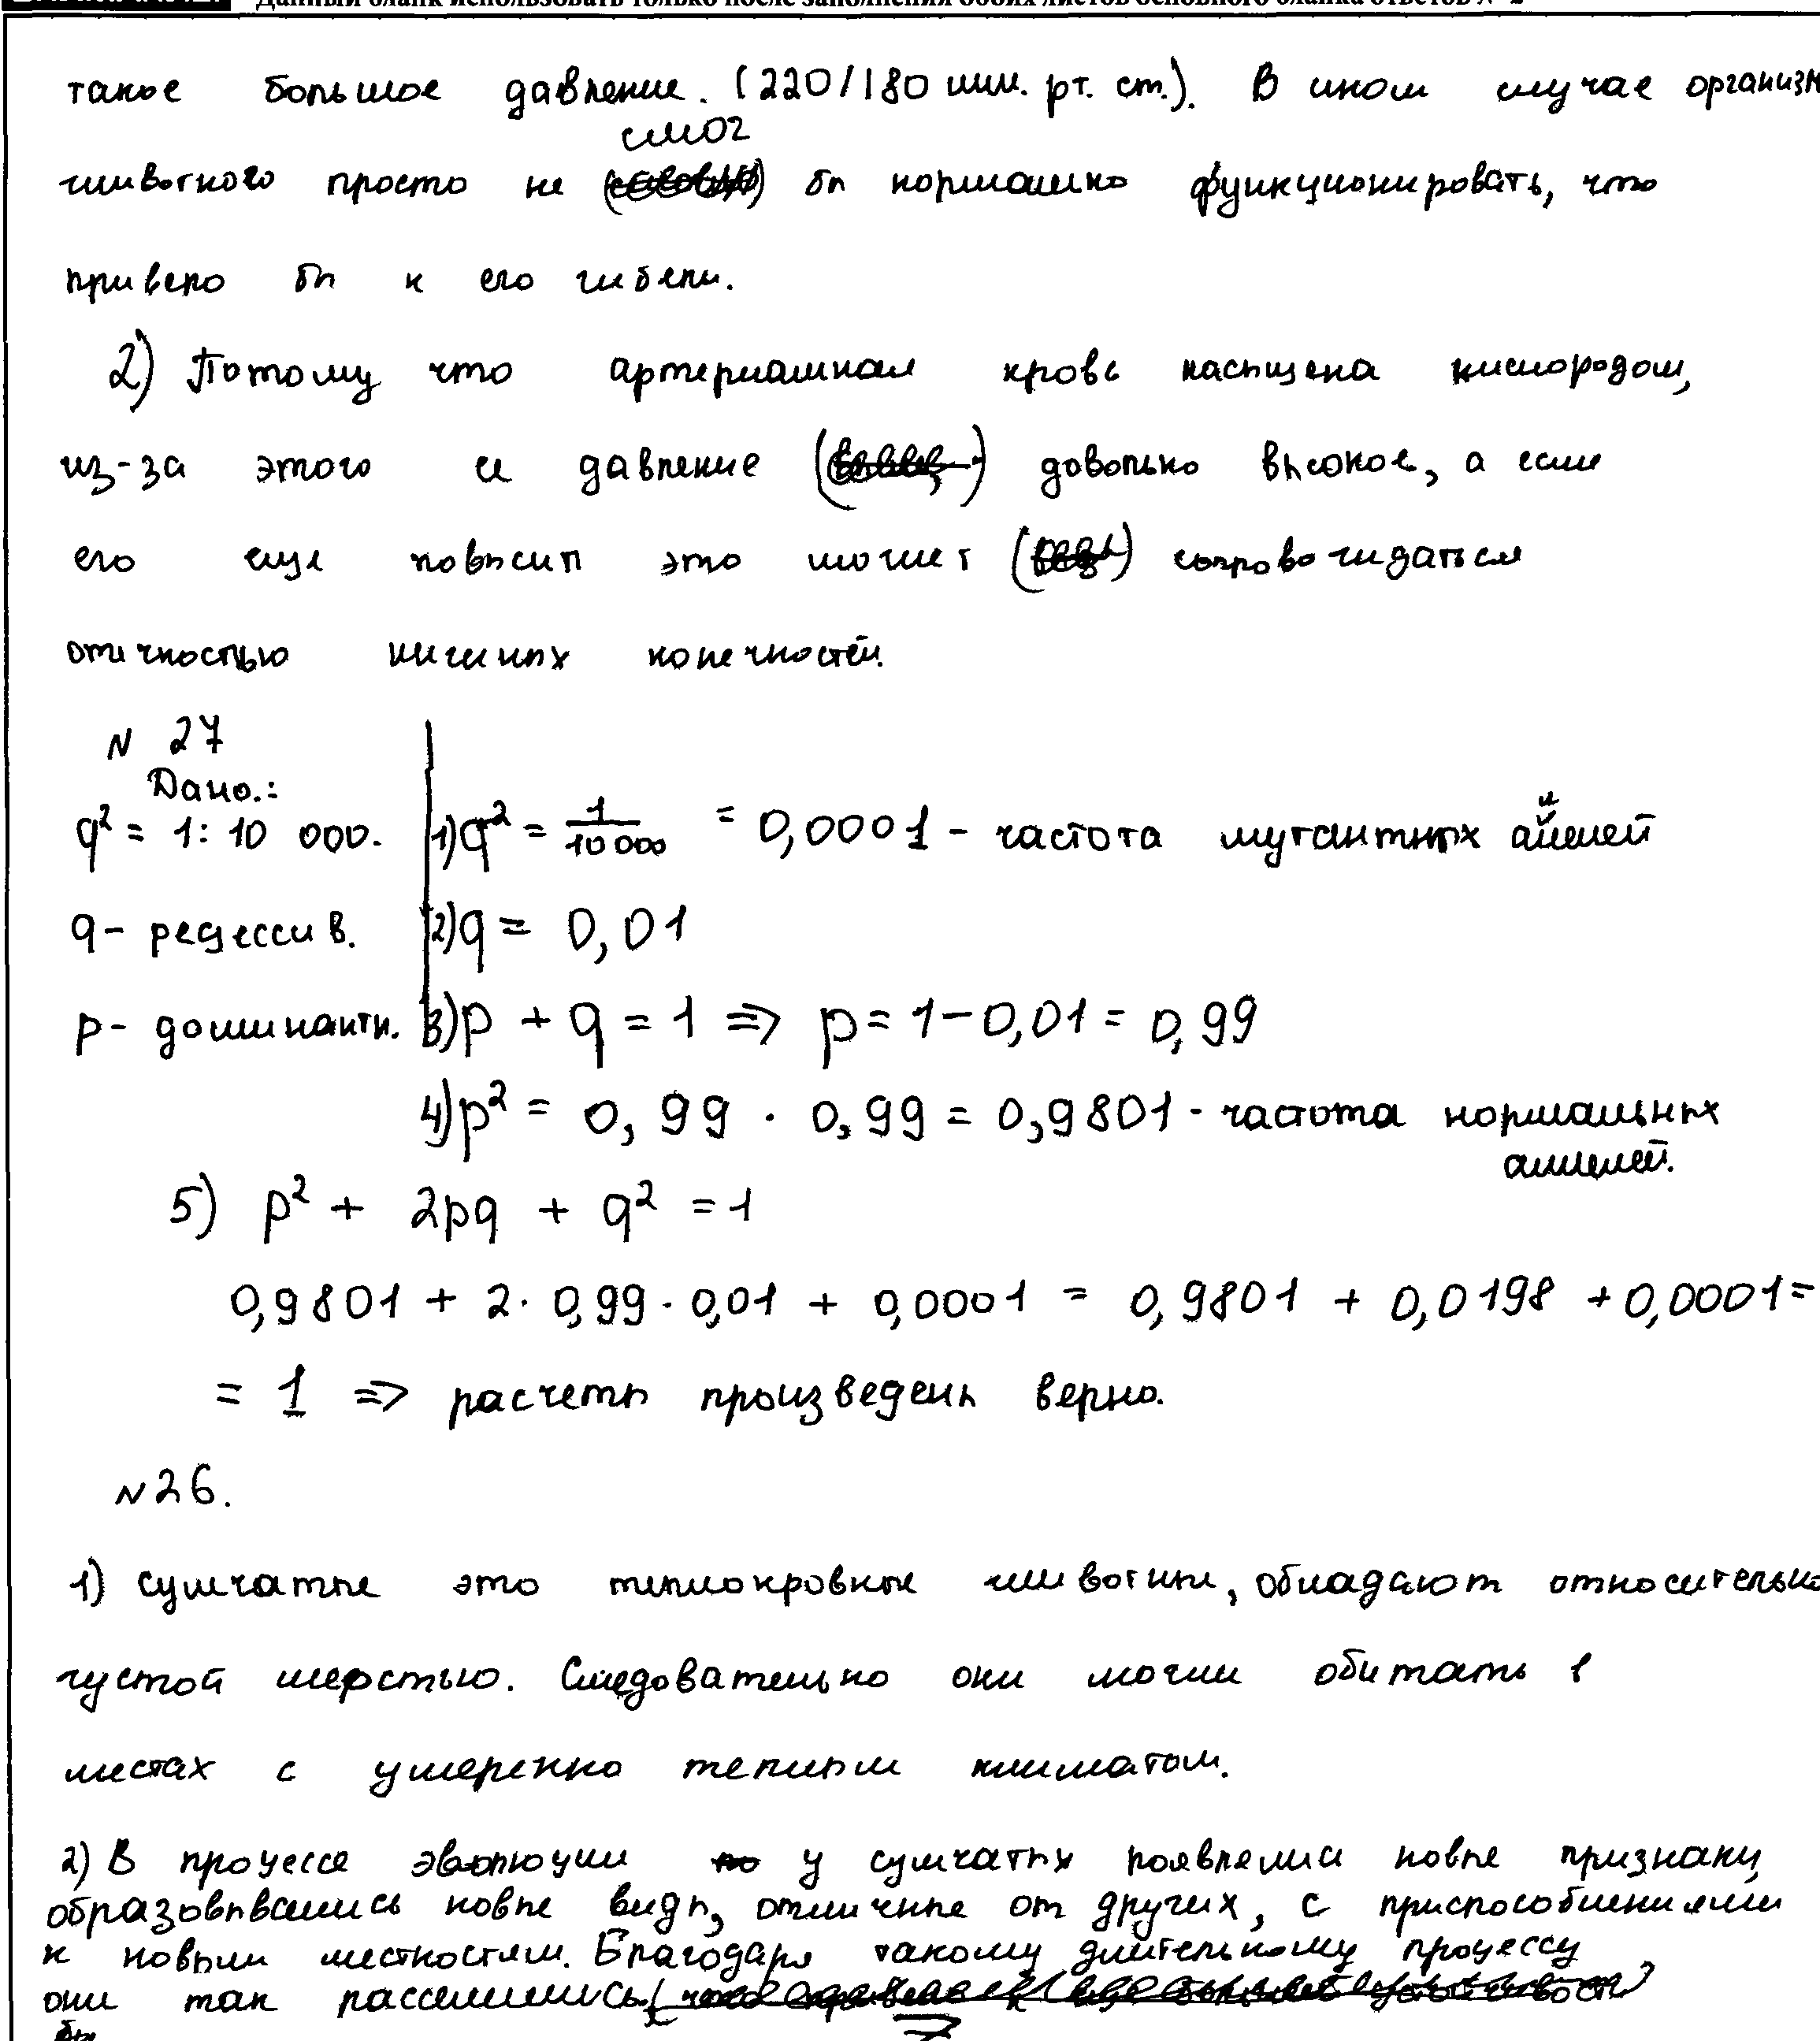 Данный бланк использовать только после заполнения обоих листов основного бланка ответов № 2
такое большое давление. (220/180 мм. рт. ст.). В ином случае организм
смог
животного просто не бы нормально функционировать, что
привело бы к его гибели.
2) Потому что артериальная кровь насыщена кислородом,
из-за этого её давление довольно высокое, а если
его еще повысит это может сопровождаться
отечностью нижних конечностей.
N 27
Дано.:
q² = 1: 10 000. 1) q² = 1/10 000 = 0,0001 - частота мутантных аллелей
q - рецессив. 2) q = 0,01
p - доминантн. 3) p + q = 1 => p = 1 - 0,01 = 0,99
4) p² = 0,99 · 0,99 = 0,9801 - частота нормальных
аллелей.
5) p² + 2pq + q² = 1
0,9801 + 2 · 0,99 · 0,01 + 0,0001 = 0,9801 + 0,0198 + 0,0001 =
= 1 => расчеты произведены верно.
N 26.
1) Сумчатые это теплокровные животные, обладают относительно
густой шерстью. Следовательно они могли обитать в
местах с умеренно теплым климатом.
2) В процессе эволюции у сумчатых появлялись новые признаки,
образовывались новые виды, отличные от других, с приспособлениями
к новым местностям. Благодаря такому длительному процессу
они так расселились.